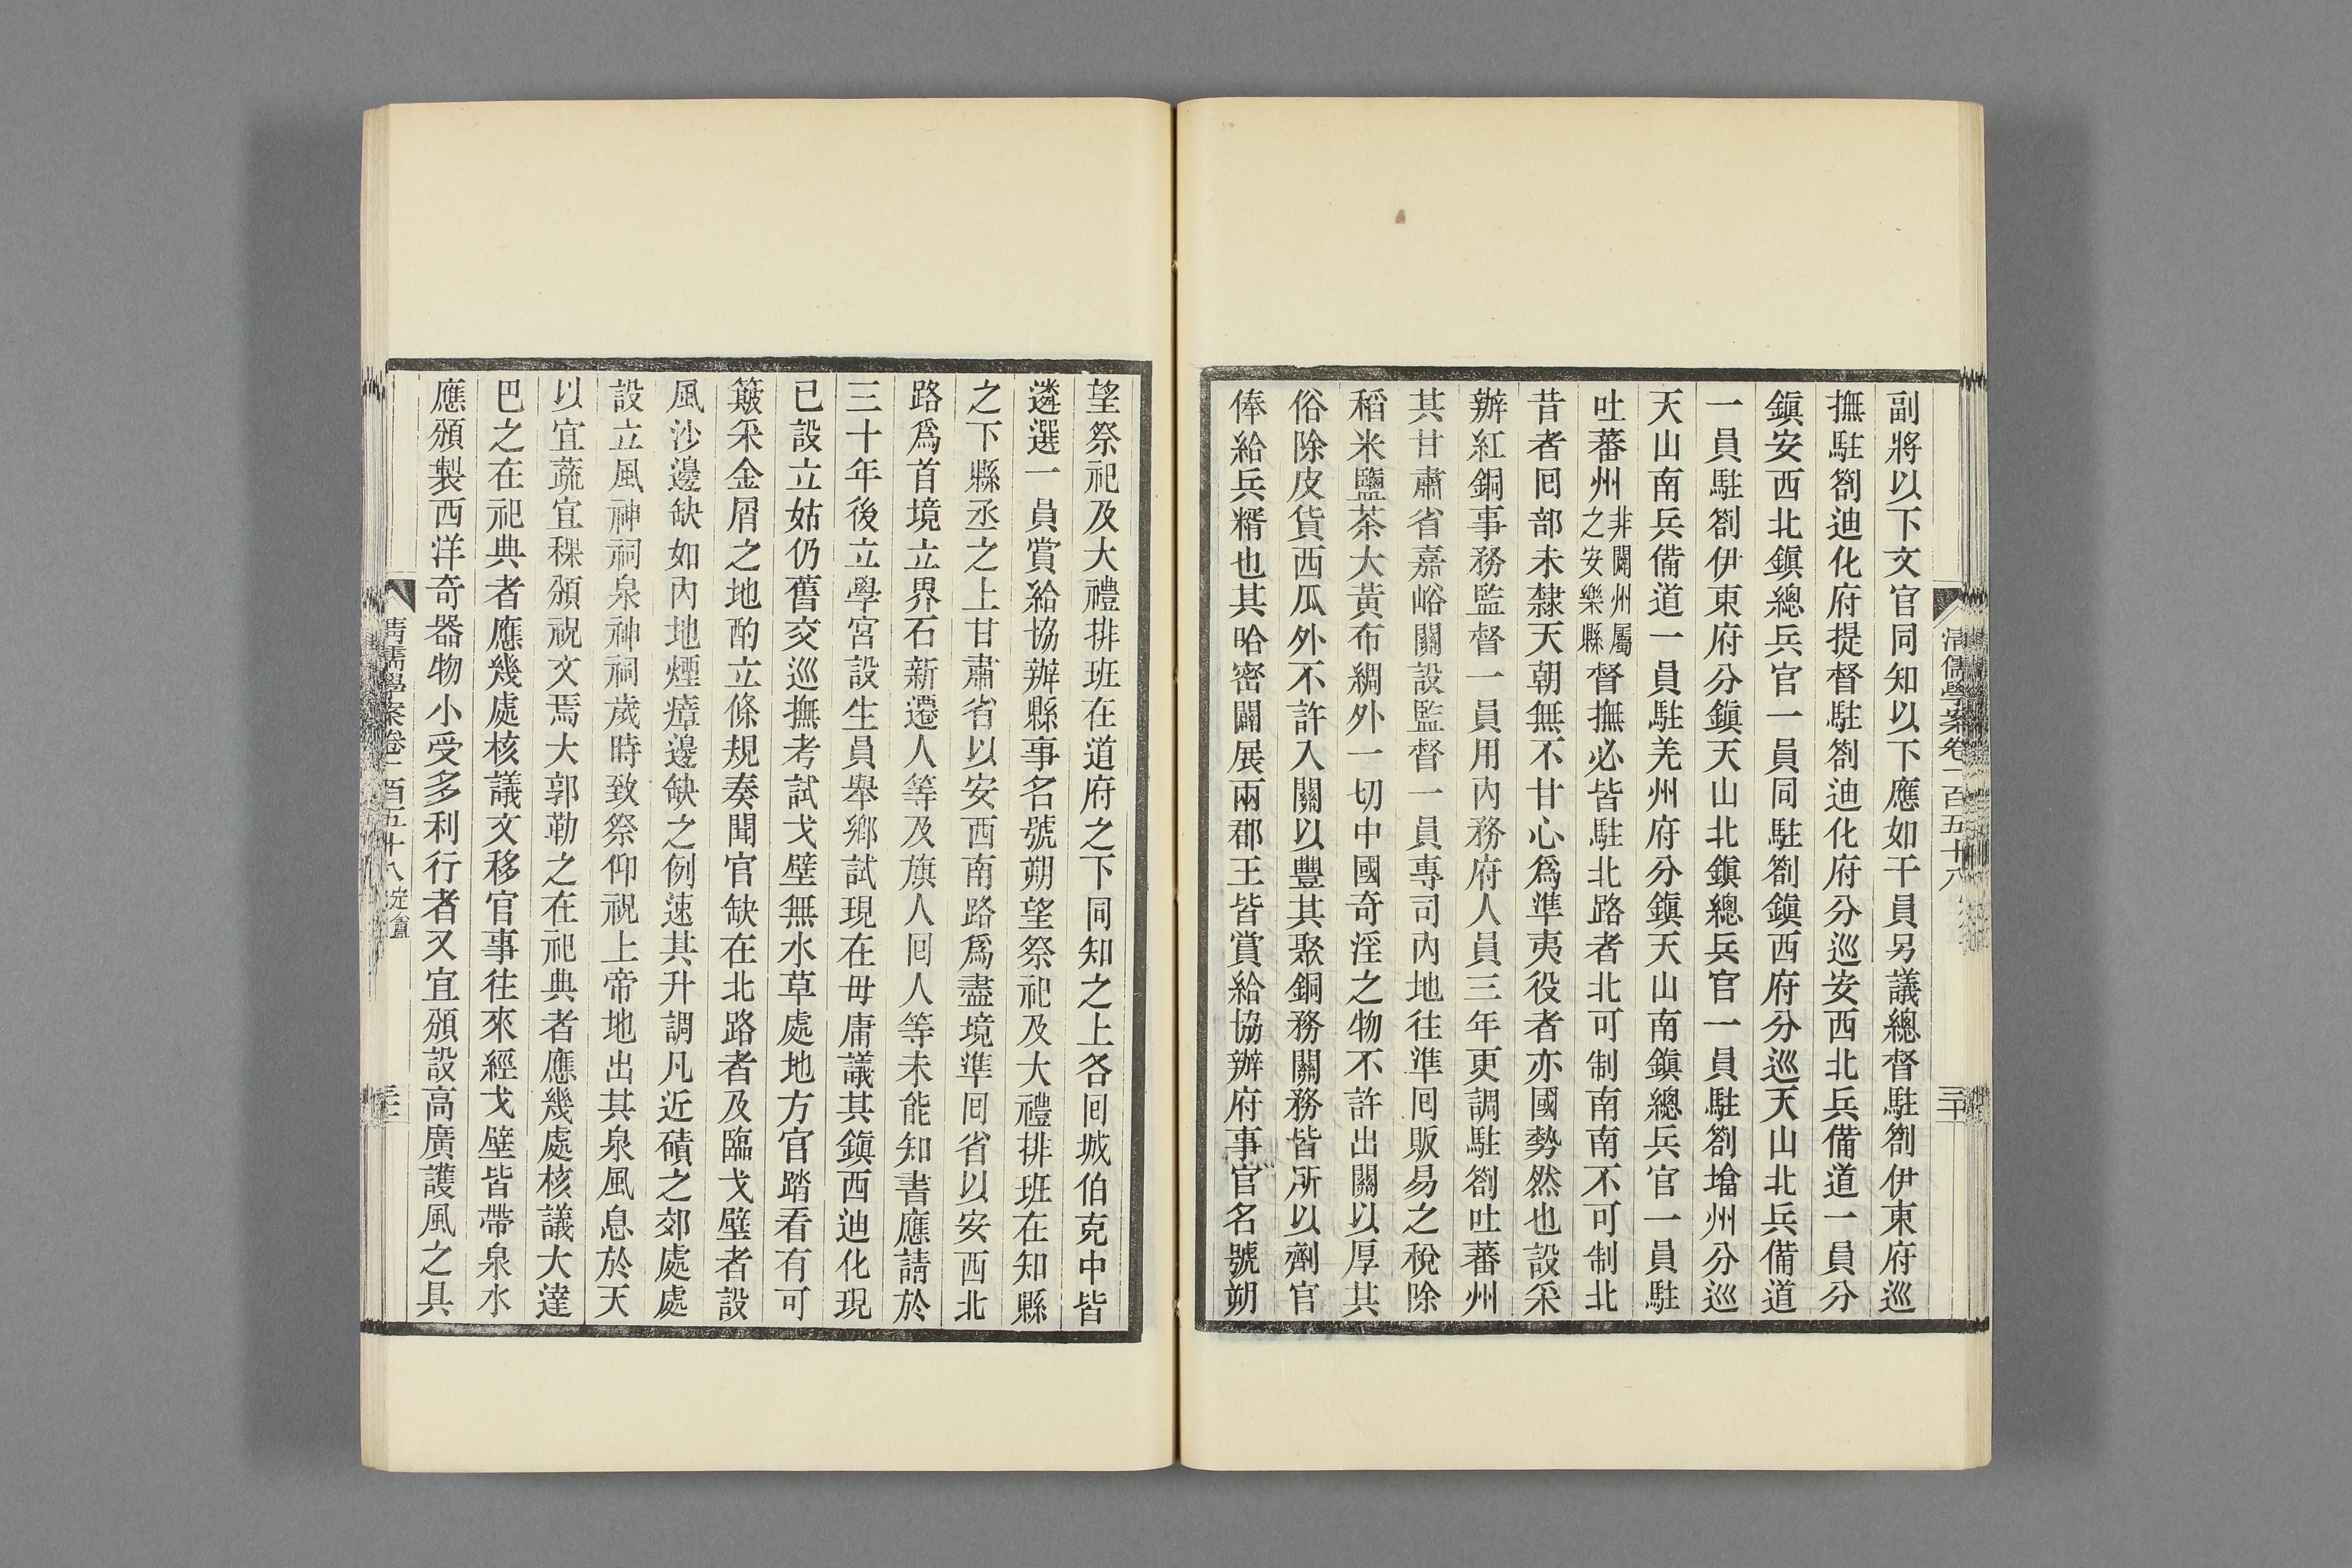 副將以下文官同知以下應如干員另議總督駐劄伊東府巡
撫駐劄迪化府提督駐劄迪化府分巡安西北兵備道一員分
鎭安西北鎭總兵官一員同駐劄鎭西府分巡天山北兵備道
一員駐劄伊東府分鎭天山北鎭總兵官一員駐劄塔州分巡
天山南兵備道一員駐羌州府分鎭天山南鎭總兵官一員駐
吐蕃州非闢州屬之安樂縣督撫必皆駐北路者北可制南南不可制北
昔者囘部未隸天朝無不甘心爲準夷役者亦國勢然也設采
辦紅銅事務監督一員用內務府人員三年更調駐劄吐蕃州
其甘肅省嘉峪關設監督一員專司內地往準囘販易之稅除
稻米鹽茶大黃布綢外一切中國奇淫之物不許出關以厚其
俗除皮貨西瓜外不許入關以豐其聚銅務關務皆所以劑官
俸給兵糈也其哈密闢展兩郡王皆賞給協辦府事官名號朔
清儒學案卷一百五十八
三十
望祭祀及大禮排班在道府之下同知之上各囘城伯克中皆
遴選一員賞給協辦縣事名號朔望祭祀及大禮排班在知縣
之下縣丞之上甘肅省以安西南路爲盡境準囘省以安西北
路爲首境立界石新遷人等及旗人囘人等未能知書應請於
三十年後立學宮設生員舉鄉試現在毋庸議其鎭西迪化現
已設立姑仍舊交巡撫考試戈壁無水草處地方官踏看有可
簸采金屑之地酌立條規奏聞官缺在北路者及臨戈壁者設
風沙邊缺如內地煙瘴邊缺之例速其升調凡近磧之郊處處
設立風神祠泉神祠歲時致祭仰祝上帝地出其泉風息於天
以宜蔬宜稞頒祝文焉大郭勒之在祀典者應幾處核議大達
巴之在祀典者應幾處核議文移官事往來經戈壁皆帶泉水
應頒製西洋奇器物小受多利行者又宜頒設高廣護風之具
清儒學案卷一百五十八 定盦